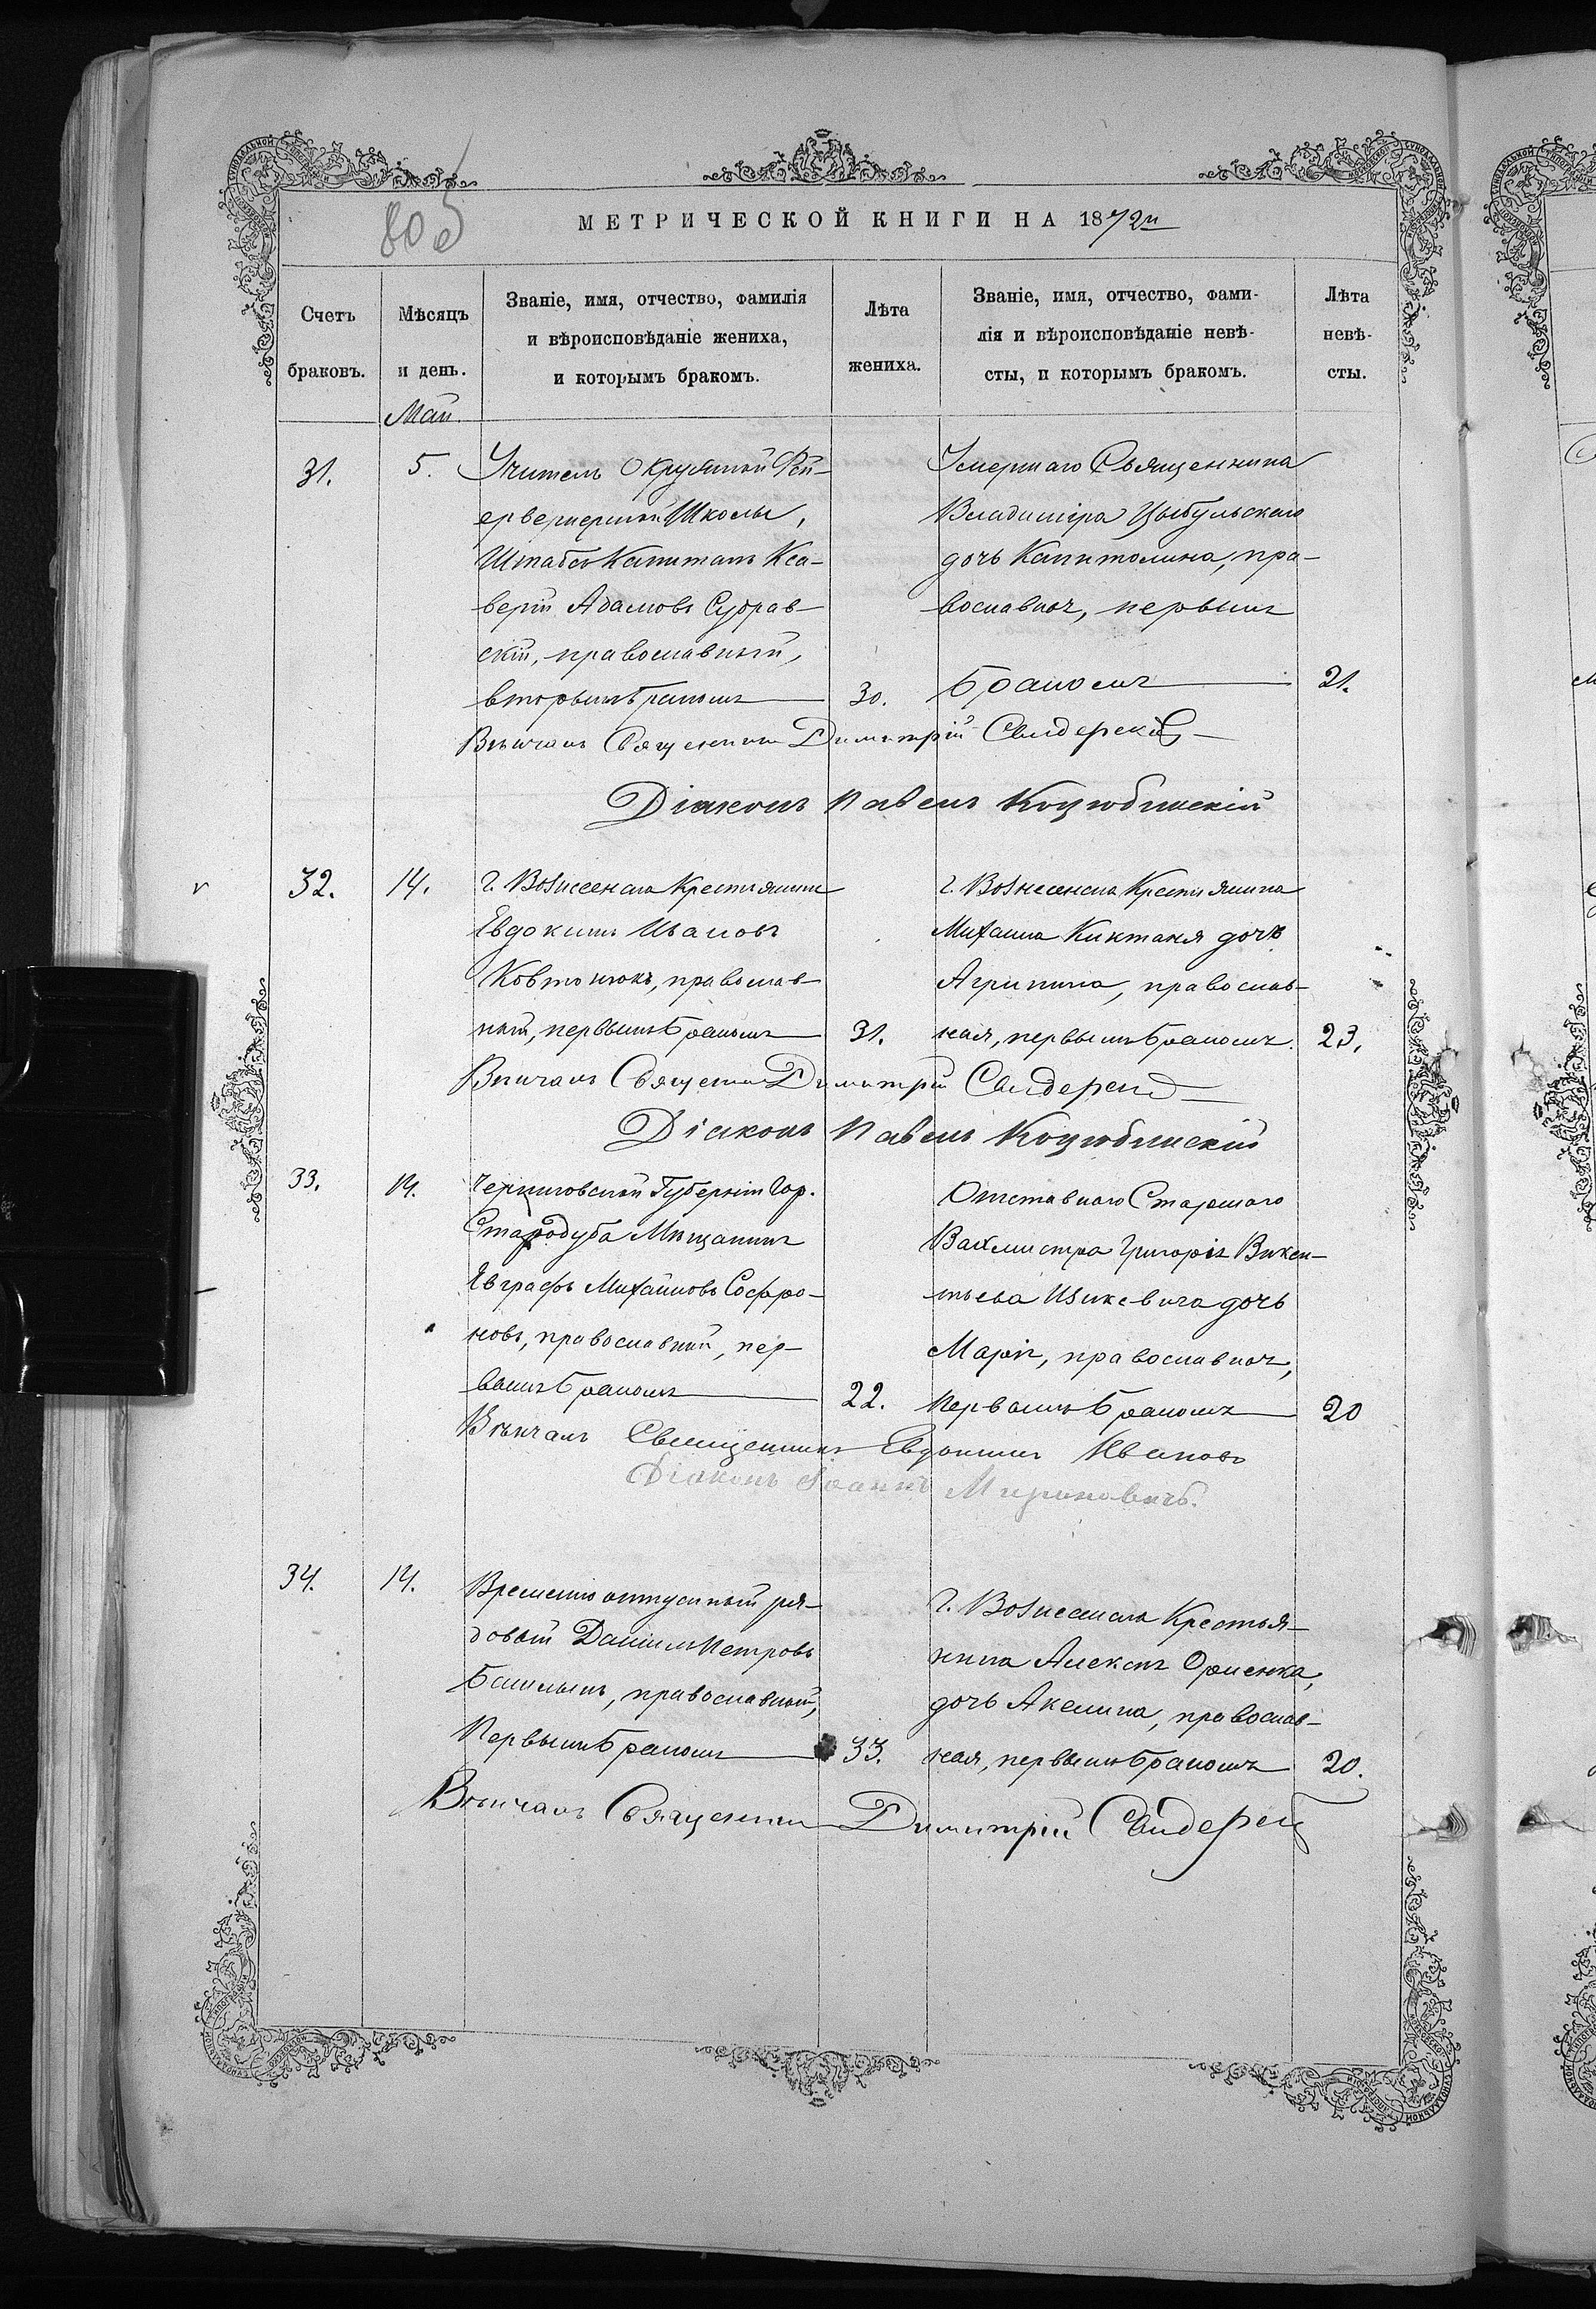 805
МЕТРИЧЕСКОЙ КНИГИ НА 1872 г.
Счетъ браковъ.
Мѣсяцъ и день.
Званіе, имя, отчество, фамилія
и вѣроисповѣданіе жениха,
и которымъ бракомъ.
Лѣта жениха.
Званіе, имя, отчество, фами-
лія и вѣроисповѣданіе невѣ-
сты, и которымъ бракомъ.
Лѣта невѣ-
сты.
Май.
31.
5.
Учитель Окружной Фей-
ерверкерской Школы,
Штабсъ Капитанъ Кса-
верій Адамовъ Судрав-
скій, православный,
вторымъ бракомъ
30.
Умершаго Священника
Владиміра Цыбульскаго
дочь Капитолина, пра-
вославная, первымъ
бракомъ
21.
Вѣнчалъ Священникъ Димитрій Свидерскій
Діаконъ Павелъ Коцюбинскій
32.
14.
г. Вознесенска Крестьянинъ
Евдокимъ Ивановъ
Ковтонюкъ, православ-
ный, первымъ бракомъ
31.
г. Вознесенска Крестьянина
Михаила Киктакя дочь
Агрипина, православ-
ная, первымъ бракомъ.
23.
Вѣнчалъ Священникъ Димитрій Свидерскій
Діаконъ Павелъ Коцюбинскій
33.
14.
Черниговской Губерніи Гор.
Стародуба Мѣщанинъ
Евграфъ Михайловъ Софро-
новъ, православный, пер-
вымъ бракомъ
22.
Отставного Старшаго
Вахмистра Григорія Викен-
тьева Ицкевича дочь
Марія, православная,
первымъ бракомъ
20
Вѣнчалъ Священникъ Евдокимъ Ивановъ
Діаконъ Іоаннъ Мироновичъ.
34.
14.
Временно отпускной ря-
довый Даніилъ Петровъ
православный,
Первымъ бракомъ
33.
г. Вознесенска Крестья-
нина Алексѣя
дочь Акелина, православ-
ная, первымъ бракомъ
20.
Вѣнчалъ Священникъ Димитрій Свидерскій